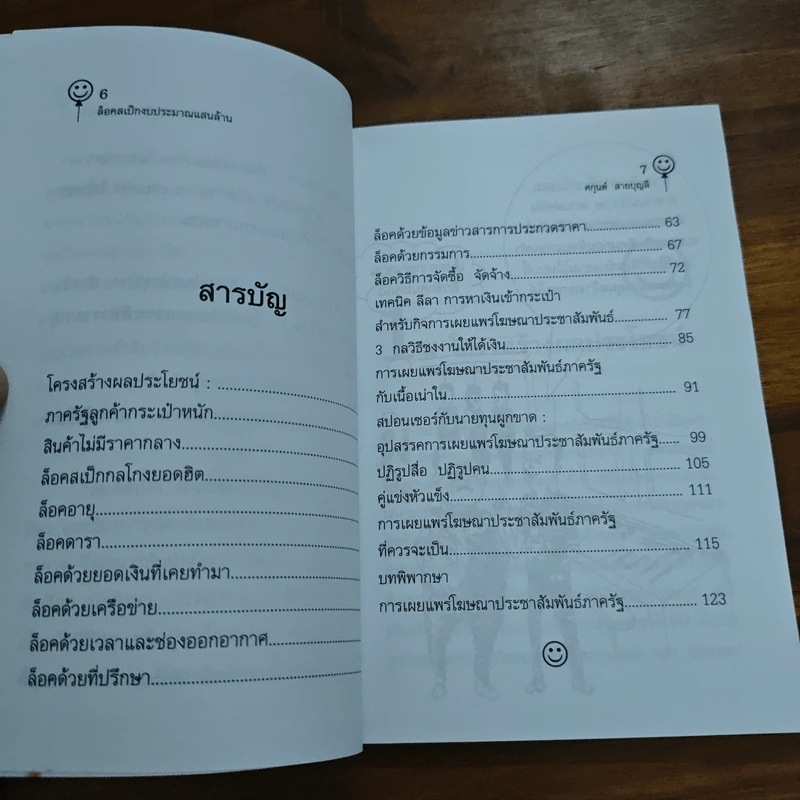 6
ล็อคสเป็กงบประมาณแสนล้าน
สารบัญ
โครงสร้างผลประโยชน์ : ....................
ภาครัฐลูกค้ากระเป๋าหนัก....................
สินค้าไม่มีราคากลาง....................
ล็อคสเป็กกลโกงยอดฮิต....................
ล็อคอายุ....................
ล็อคดารา....................
ล็อคด้วยยอดเงินที่เคยทำมา....................
ล็อคด้วยเครือข่าย....................
ล็อคด้วยเวลาและช่องออกอากาศ....................
ล็อคด้วยที่ปรึกษา....................
7
ศกุนต์ สายบุญลี
ล็อคด้วยข้อมูลข่าวสารการประกวดราคา.................... 63
ล็อคด้วยกรรมการ.................... 67
ล็อควิธีการจัดซื้อ จัดจ้าง.................... 72
เทคนิค ลีลา การหาเงินเข้ากระเป๋า
สำหรับกิจการเผยแพร่โฆษณาประชาสัมพันธ์.............. 77
3 กลวิธีชงงานให้ได้เงิน.................... 85
การเผยแพร่โฆษณาประชาสัมพันธ์ภาครัฐ
กับเนื้อเน่าใน.................... 91
สปอนเซอร์กับนายทุนผูกขาด :
อุปสรรคการเผยแพร่โฆษณาประชาสัมพันธ์ภาครัฐ...... 99
ปฏิรูปสื่อ ปฏิรูปคน.................... 105
คู่แข่งหัวแข็ง.................... 111
การเผยแพร่โฆษณาประชาสัมพันธ์ภาครัฐ
ที่ควรจะเป็น.................... 115
บทพิพากษา
การเผยแพร่โฆษณาประชาสัมพันธ์ภาครัฐ.................... 123